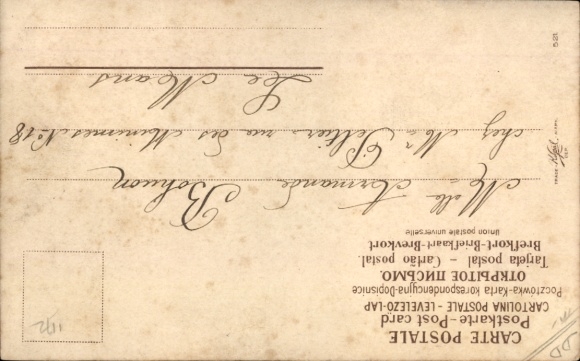 CARTE POSTALE
Postkarte-Post card
CARTOLINA POSTALE - LEVELEZÖ-LAP
Pocztowka-Karta korespondencyjna-Dopisnice
ОТКРЫТОЕ ПИСЬМО.
Tarjeta postal - Cartão postal.
Brefkort-Briefkaart-Brevkort
Union postale universelle
Melle Armande Bohuon
chez Mr Pellier rue des Minimes No 18
Le Mans
521
TRADE
DD